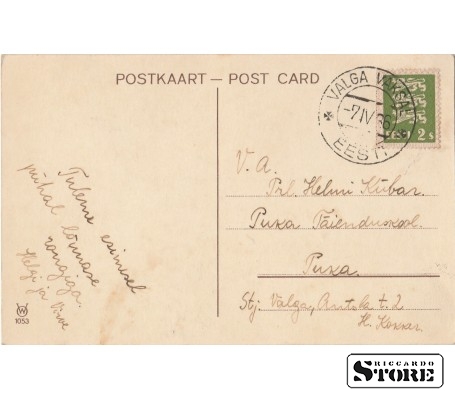 POSTKAART — POST CARD
VALGA VAKSAL
-7 IV 36
EESTI
2 s
Tuleme esimesel
pühal lõunase
rongiga.
Helgi ja
V. A.
Prl. Helmi Kübar.
Puka Täienduskool.
Puka.
Stj: Valga, t. 2
W
1053
RICCARDO
STORE